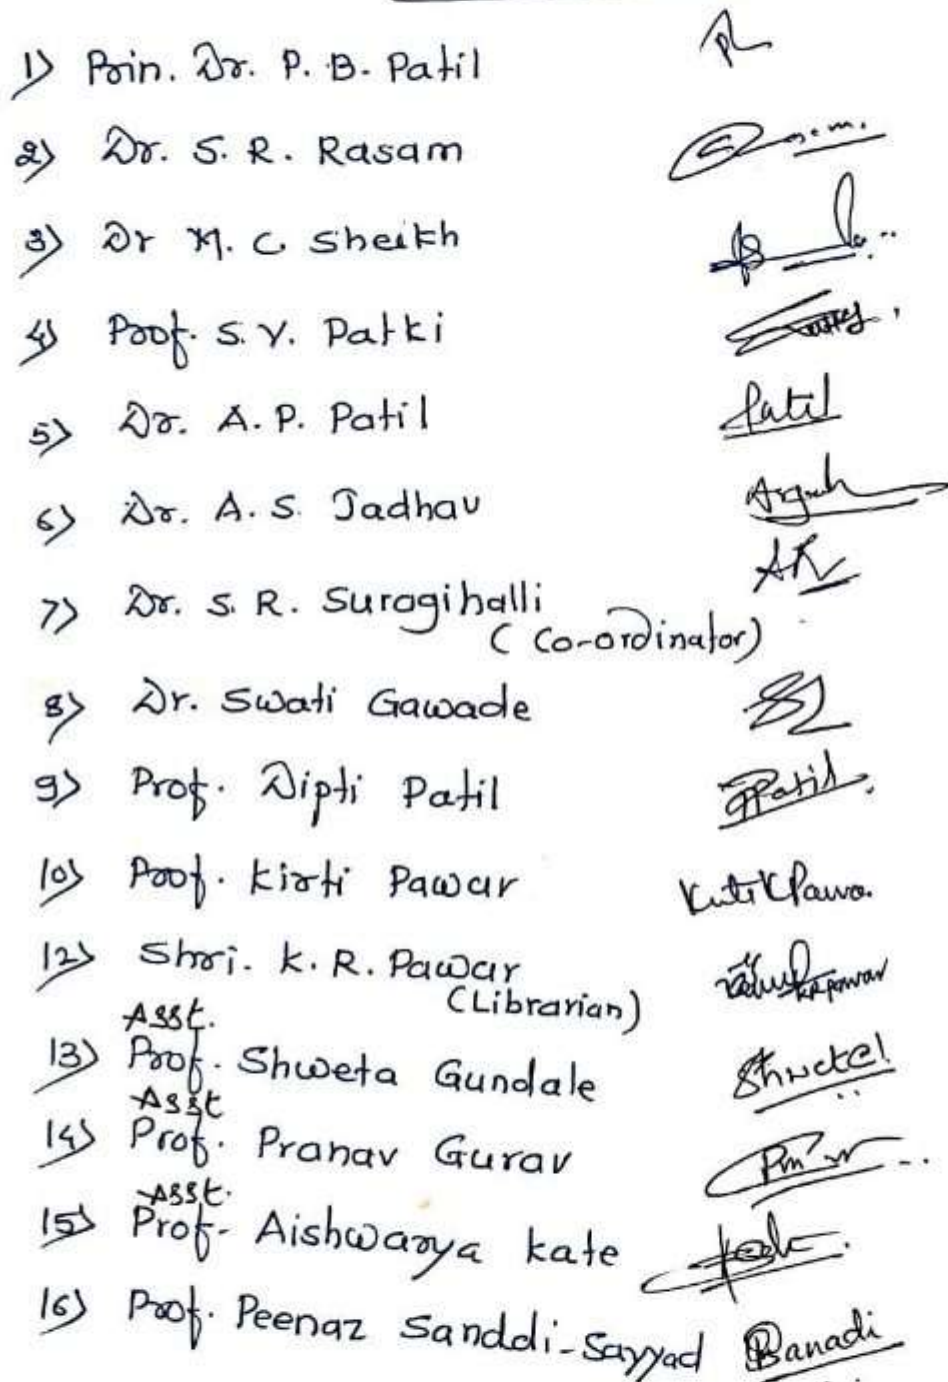 1) Prin. Dr. P. B. Patil
2) Dr. S. R. Rasam
3) Dr M. C Sheikh
4) Prof. S. V. Patki
5) Dr. A. P. Patil
Patil
6) Dr. A. S. Jadhav
7) Dr. S. R. Surogihalli
(Co-ordinator)
8) Dr. Swati Gawade
9) Prof. Dipti Patil
Patil
10) Prof. Kirti Pawar
12) Shri. K. R. Pawar
(Librarian)
Asst.
13) Prof. Shweta Gundale
Asst
14) Prof. Pranav Gurav
Asst.
15) Prof- Aishwarya Kate
16) Prof. Peenaz Sanddi-Sayyad